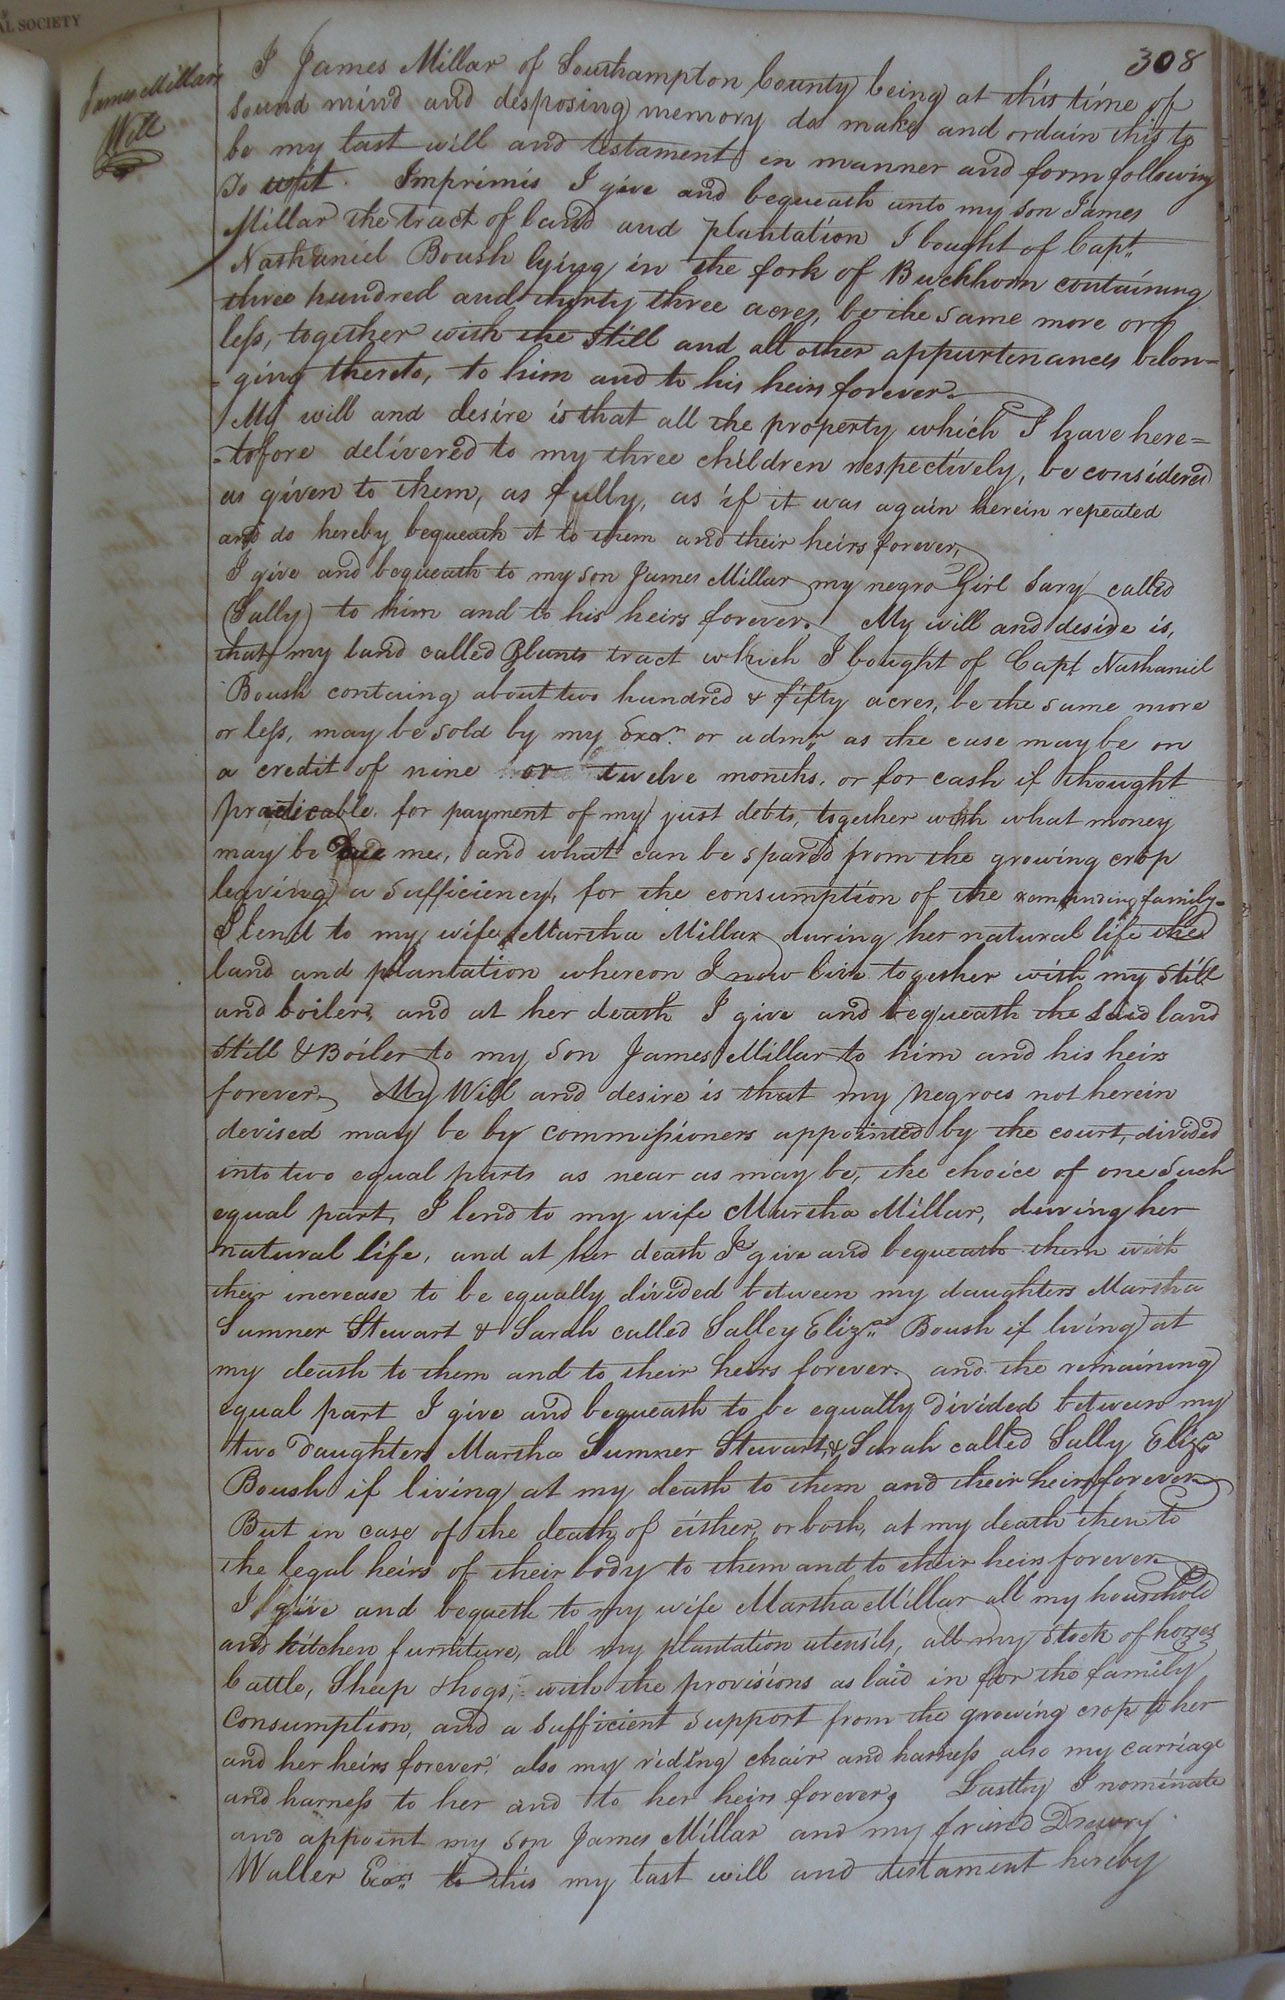 AL SOCIETY
308
James Millar's
Will
I James Millar of Southampton County being at this time of
sound mind and desposing memory do make and ordain this to
be my last will and testament in manner and form following
To wit. Imprimis I give and bequeath unto my son James
Millar the tract of land and plantation I bought of Capt.
Nathaniel Boush lying in the fork of Buckhorn containing
three hundred and thirty three acres, be the same more or
less, together with the Still and all other appurtenances belon=
=ging thereto, to him and to his heirs forever.
My will and desire is that all the property which I have here=
=tofore delivered to my three children respectively, be considered
as given to them, as fully, as if it was again herein repeated
and do hereby bequeath it to them and their heirs forever,
I give and bequeath to my son James Millar my negro Girl Sary called
(Sally) to him and to his heirs forever. My will and desire is,
that my land called Blunts tract which I bought of Capt. Nathaniel
Boush containg about two hundred & fifty acres, be the same more
or less, may be sold by my Exor. or admr. as the case may be on
a credit of nine or twelve months, or for cash if thought
practicable for payment of my just debts, together with what money
may be due me, and what can be spared from the growing crop
leaving a sufficiency, for the consumption of the remainding family.
I lend to my wife Martha Millar during her natural life the
land and plantation whereon I now live together with my still
and boiler, and at her death I give and bequeath the said land
Still & Boiler to my son James Millar to him and his heirs
forever. My Will and desire is that my negroes not herein
devised may be by commissioners appointed by the court, divided
into two equal parts as near as may be, the choice of one such
equal part, I lend to my wife Martha Millar, during her
natural life, and at her death I give and bequeath them with
their increase to be equally divided between my daughters Martha
Sumner Stewart & Sarah called Salley Eliza. Boush if living at
my death to them and to their heirs forever. and the remaining
equal part I give and bequeath to be equally divided between my
two daughters Martha Sumner Stewart, & Sarah called Sally Eliza.
Boush if living at my death to them and their heirs forever
But in case of the death of either, or both, at my death then to
the legal heirs of their body to them and to their heirs forever.
I give and bequeth to my wife Martha Millar all my household
and kitchen furniture, all my plantation utensils, all my stock of horses
Cattle, Sheep & hogs, with the provisions as laid in for the family
Consumption, and a sufficient support from the growing crop to her
and her heirs forever, also my riding chair and harness also my carriage
and harness to her and to her heirs forever, Lastly I nominate
and appoint my son James Millar and my friend Drewry
Waller Exors. to this my last will and testament hereby